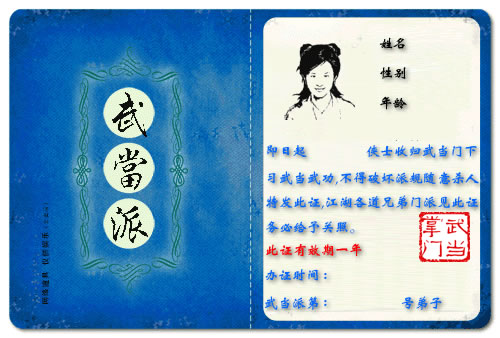 武當派
网络道具 仅供娱乐
姓名
性别
年龄
即日起 侠士收归武当门下
习武当武功,不得破坏派规随意杀人
特发此证,江湖各道兄弟门派见此证
务必给予关照。
此证有效期一年
办证时间：
武当派第： 号弟子
武当
掌门